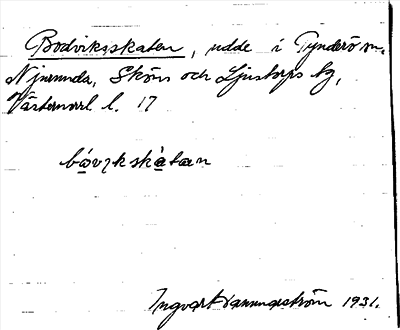 Bodviksskaten, udde i Tynderö sn.
Njurunda, Sköns och Ljustorps tg,
Västernorrl. l. 17
bóvıkskàtan
Ingvar Hammarström 1931.